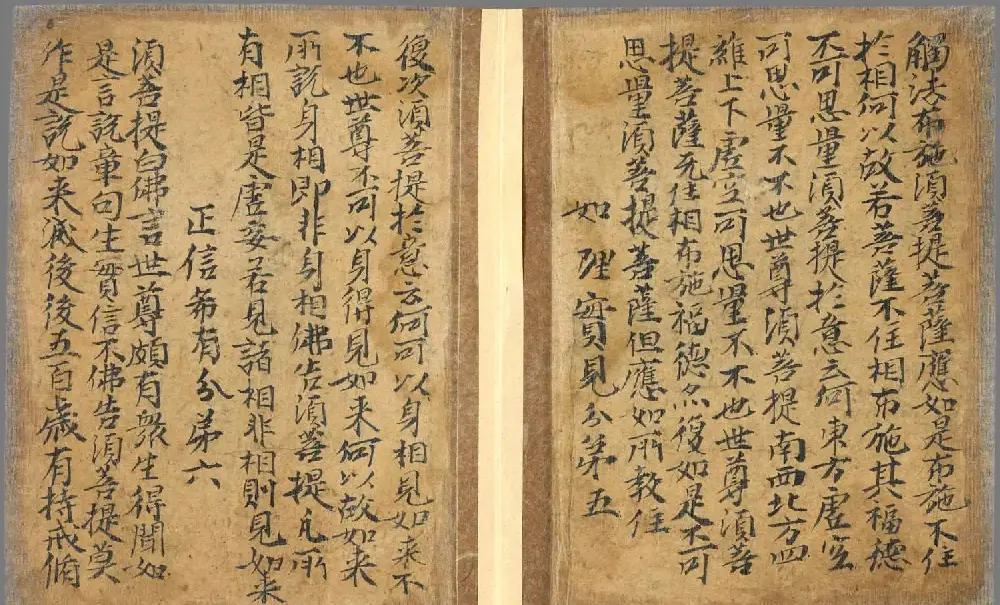 觸法布施須菩提菩薩應如是布施不住
於相何以故若菩薩不住相布施其福德
不可思量須菩提於意云何東方虛空
可思量不不也世尊須菩提南西北方四
維上下虛空可思量不不也世尊須菩
提菩薩无住相布施福德亦復如是不可
思量須菩提菩薩但應如所教住
如理實見分第五
復次須菩提於意云何可以身相見如来不
不也世尊不可以身得見如来何以故如来
所說身相即非身相佛告須菩提凡所
有相皆是虛妄若見諸相非相則見如来
正信希有分弟六
須菩提白佛言世尊頗有衆生得聞如
是言說章句生實信不佛告須菩提莫
作是說如来滅後後五百歲有持戒脩